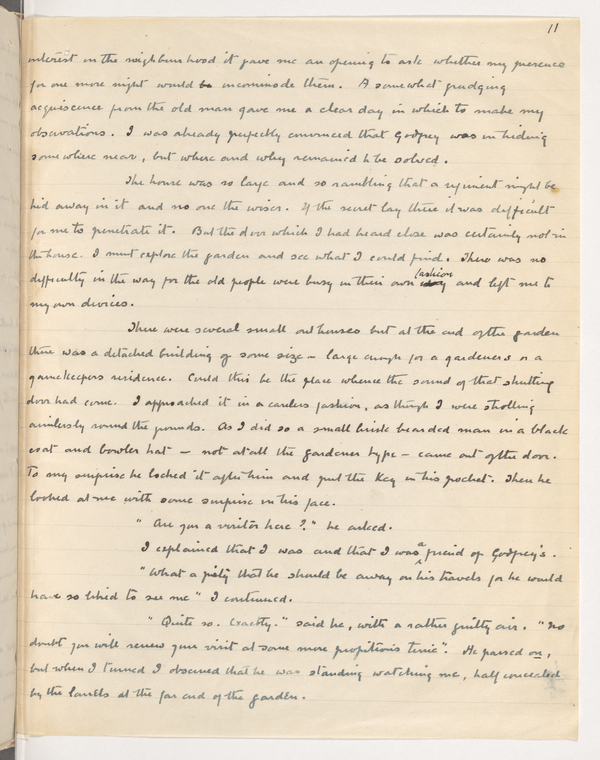 11
interest in the neighbourhood it gave me an opening to ask whether my presence
for one more night would be incommode them. A somewhat grudging
acquiescence from the old man gave me a clear day in which to make my
observations. I was already perfectly convinced that Godfrey was in hiding
somewhere near, but where and why remained to be solved.
The house was so large and so rambling that a regiment might be
hid away in it and no one the wiser. If the secret lay there it was difficult
for me to penetrate it. But the door which I had heard close was certainly not in
the house. I must explore the garden and see what I could find. There was no
difficulty in the way for the old people were busy in their own way fashion and left me to
my own devices.
There were several small outhouses but at the end of the garden
there was a detached building of some size — large enough for a gardeners or a
gamekeepers residence. Could this be the place whence the sound of that shutting
door had come. I approached it in a careless fashion, as though I were strolling
aimlessly round the grounds. As I did so a small brisk bearded man in a black
coat and bowler hat — not at all the gardener type — came out of the door.
To my surprise he locked it after him and put the key in his pocket. Then he
looked at me with some surprise in his face.
"Are you a visitor here?" he asked.
I explained that I was and that I was a friend of Godfrey's.
"What a pity that he should be away on his travels for he would
have so liked to see me" I continued.
"Quite so. Exactly." said he, with a rather guilty air. "No
doubt you will renew your visit at some more propitious time". He passed on,
but when I turned I observed that he was standing watching me, half concealed
by the laurels at the far end of the garden.